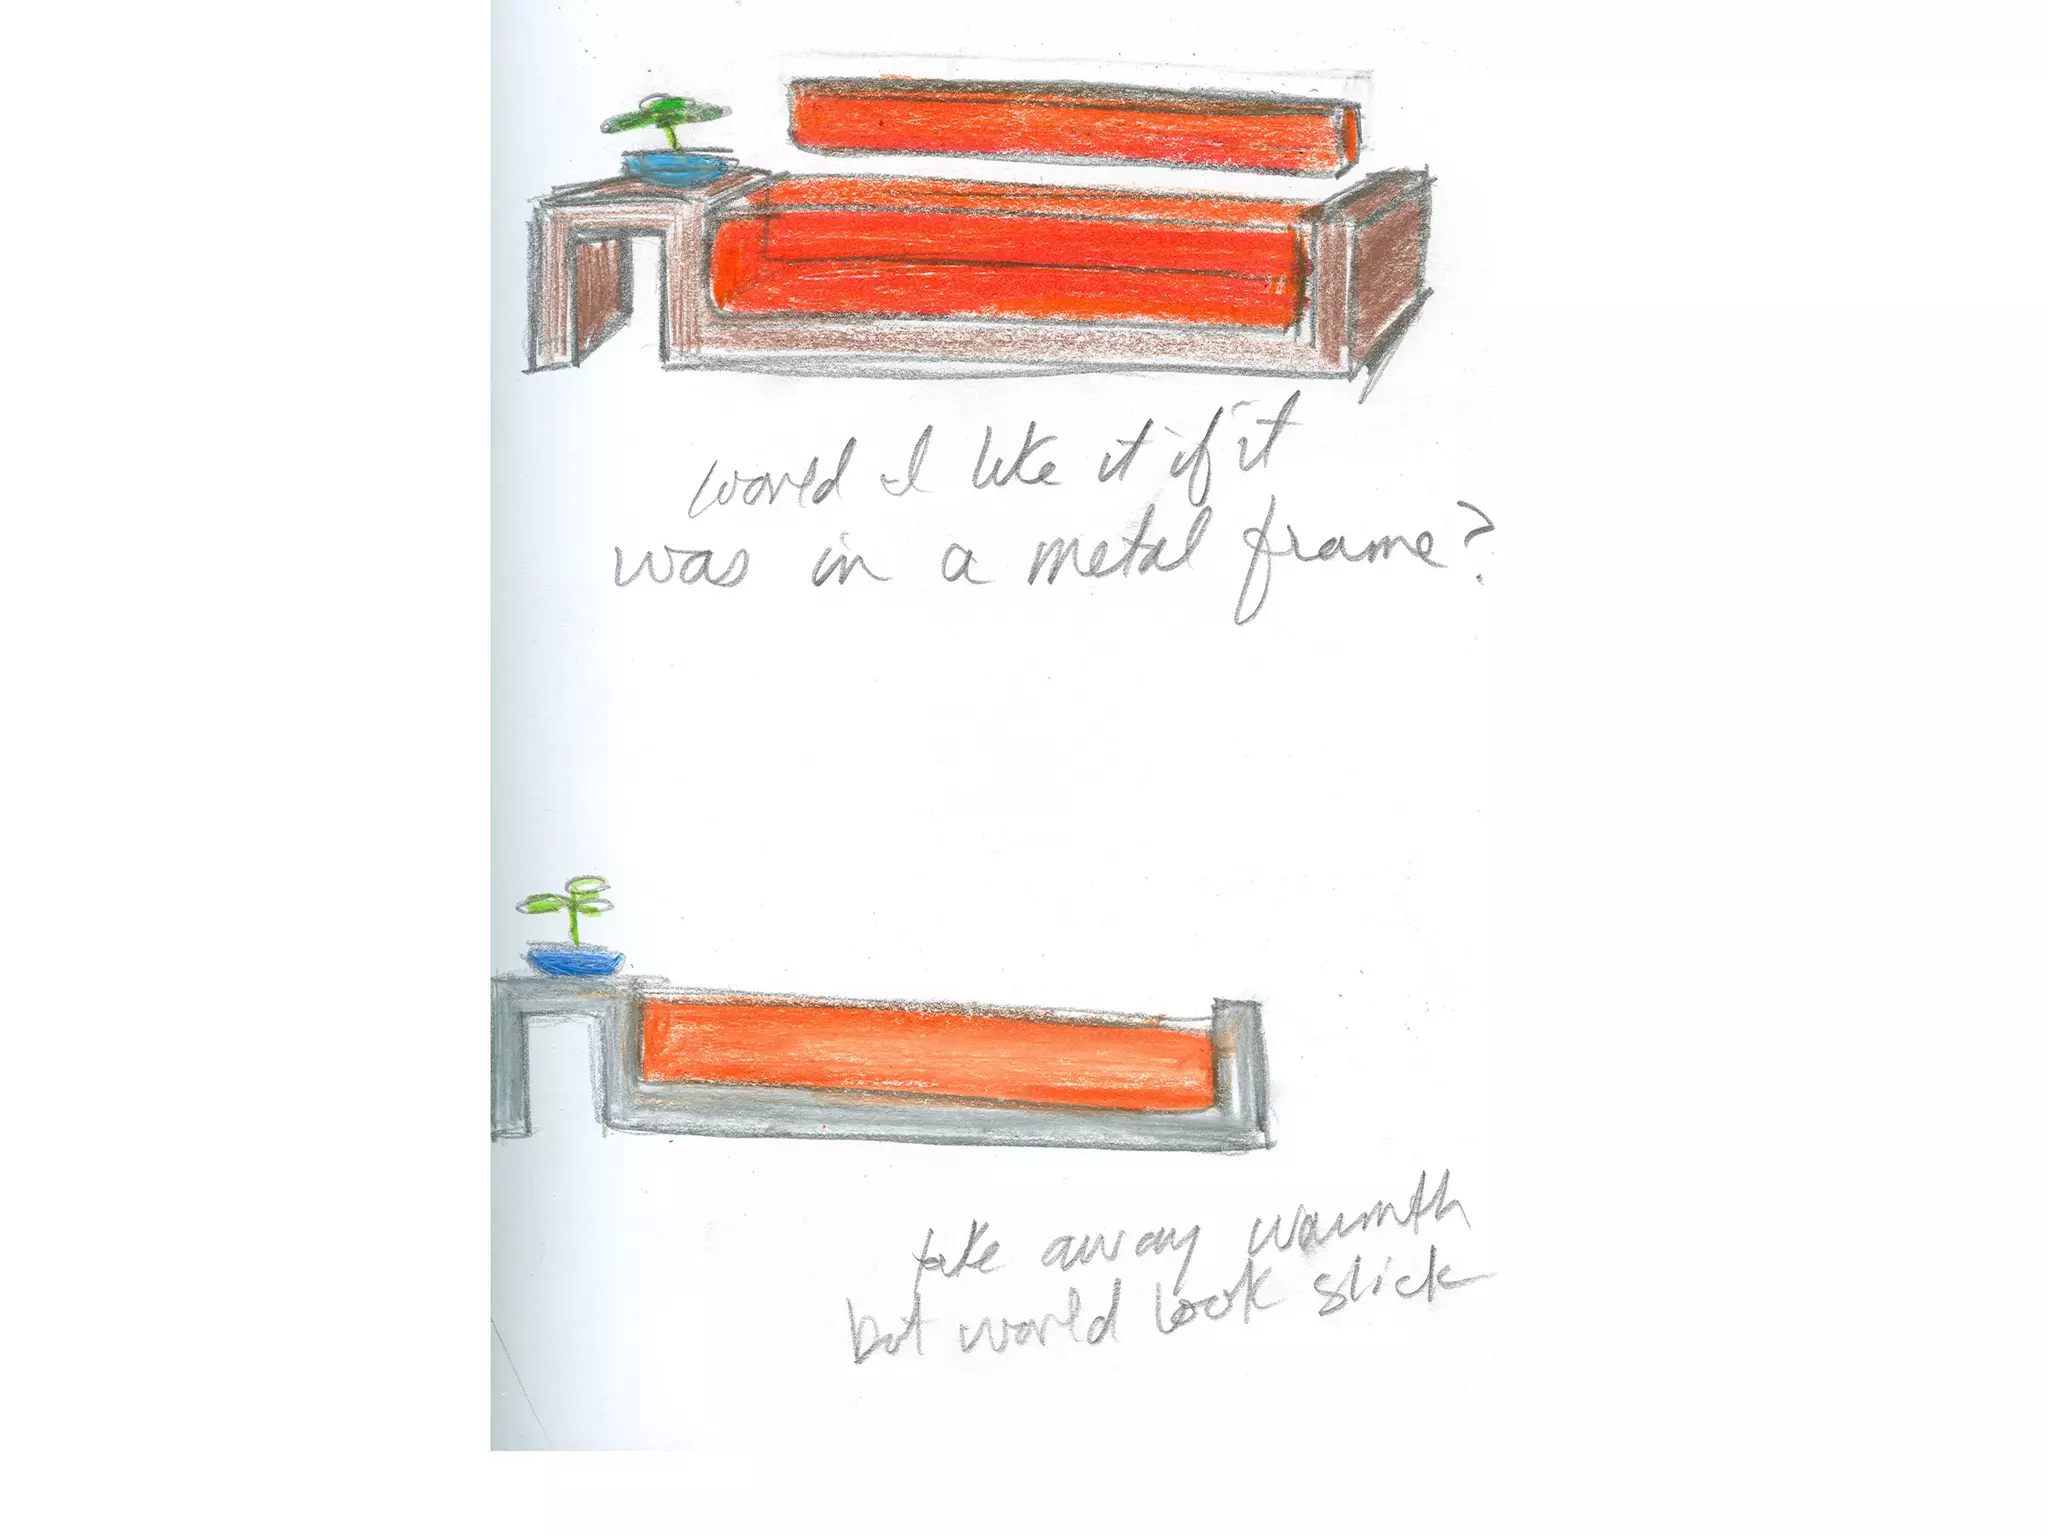 would I like it if it
was in a metal frame?
take away warmth
but would look slick